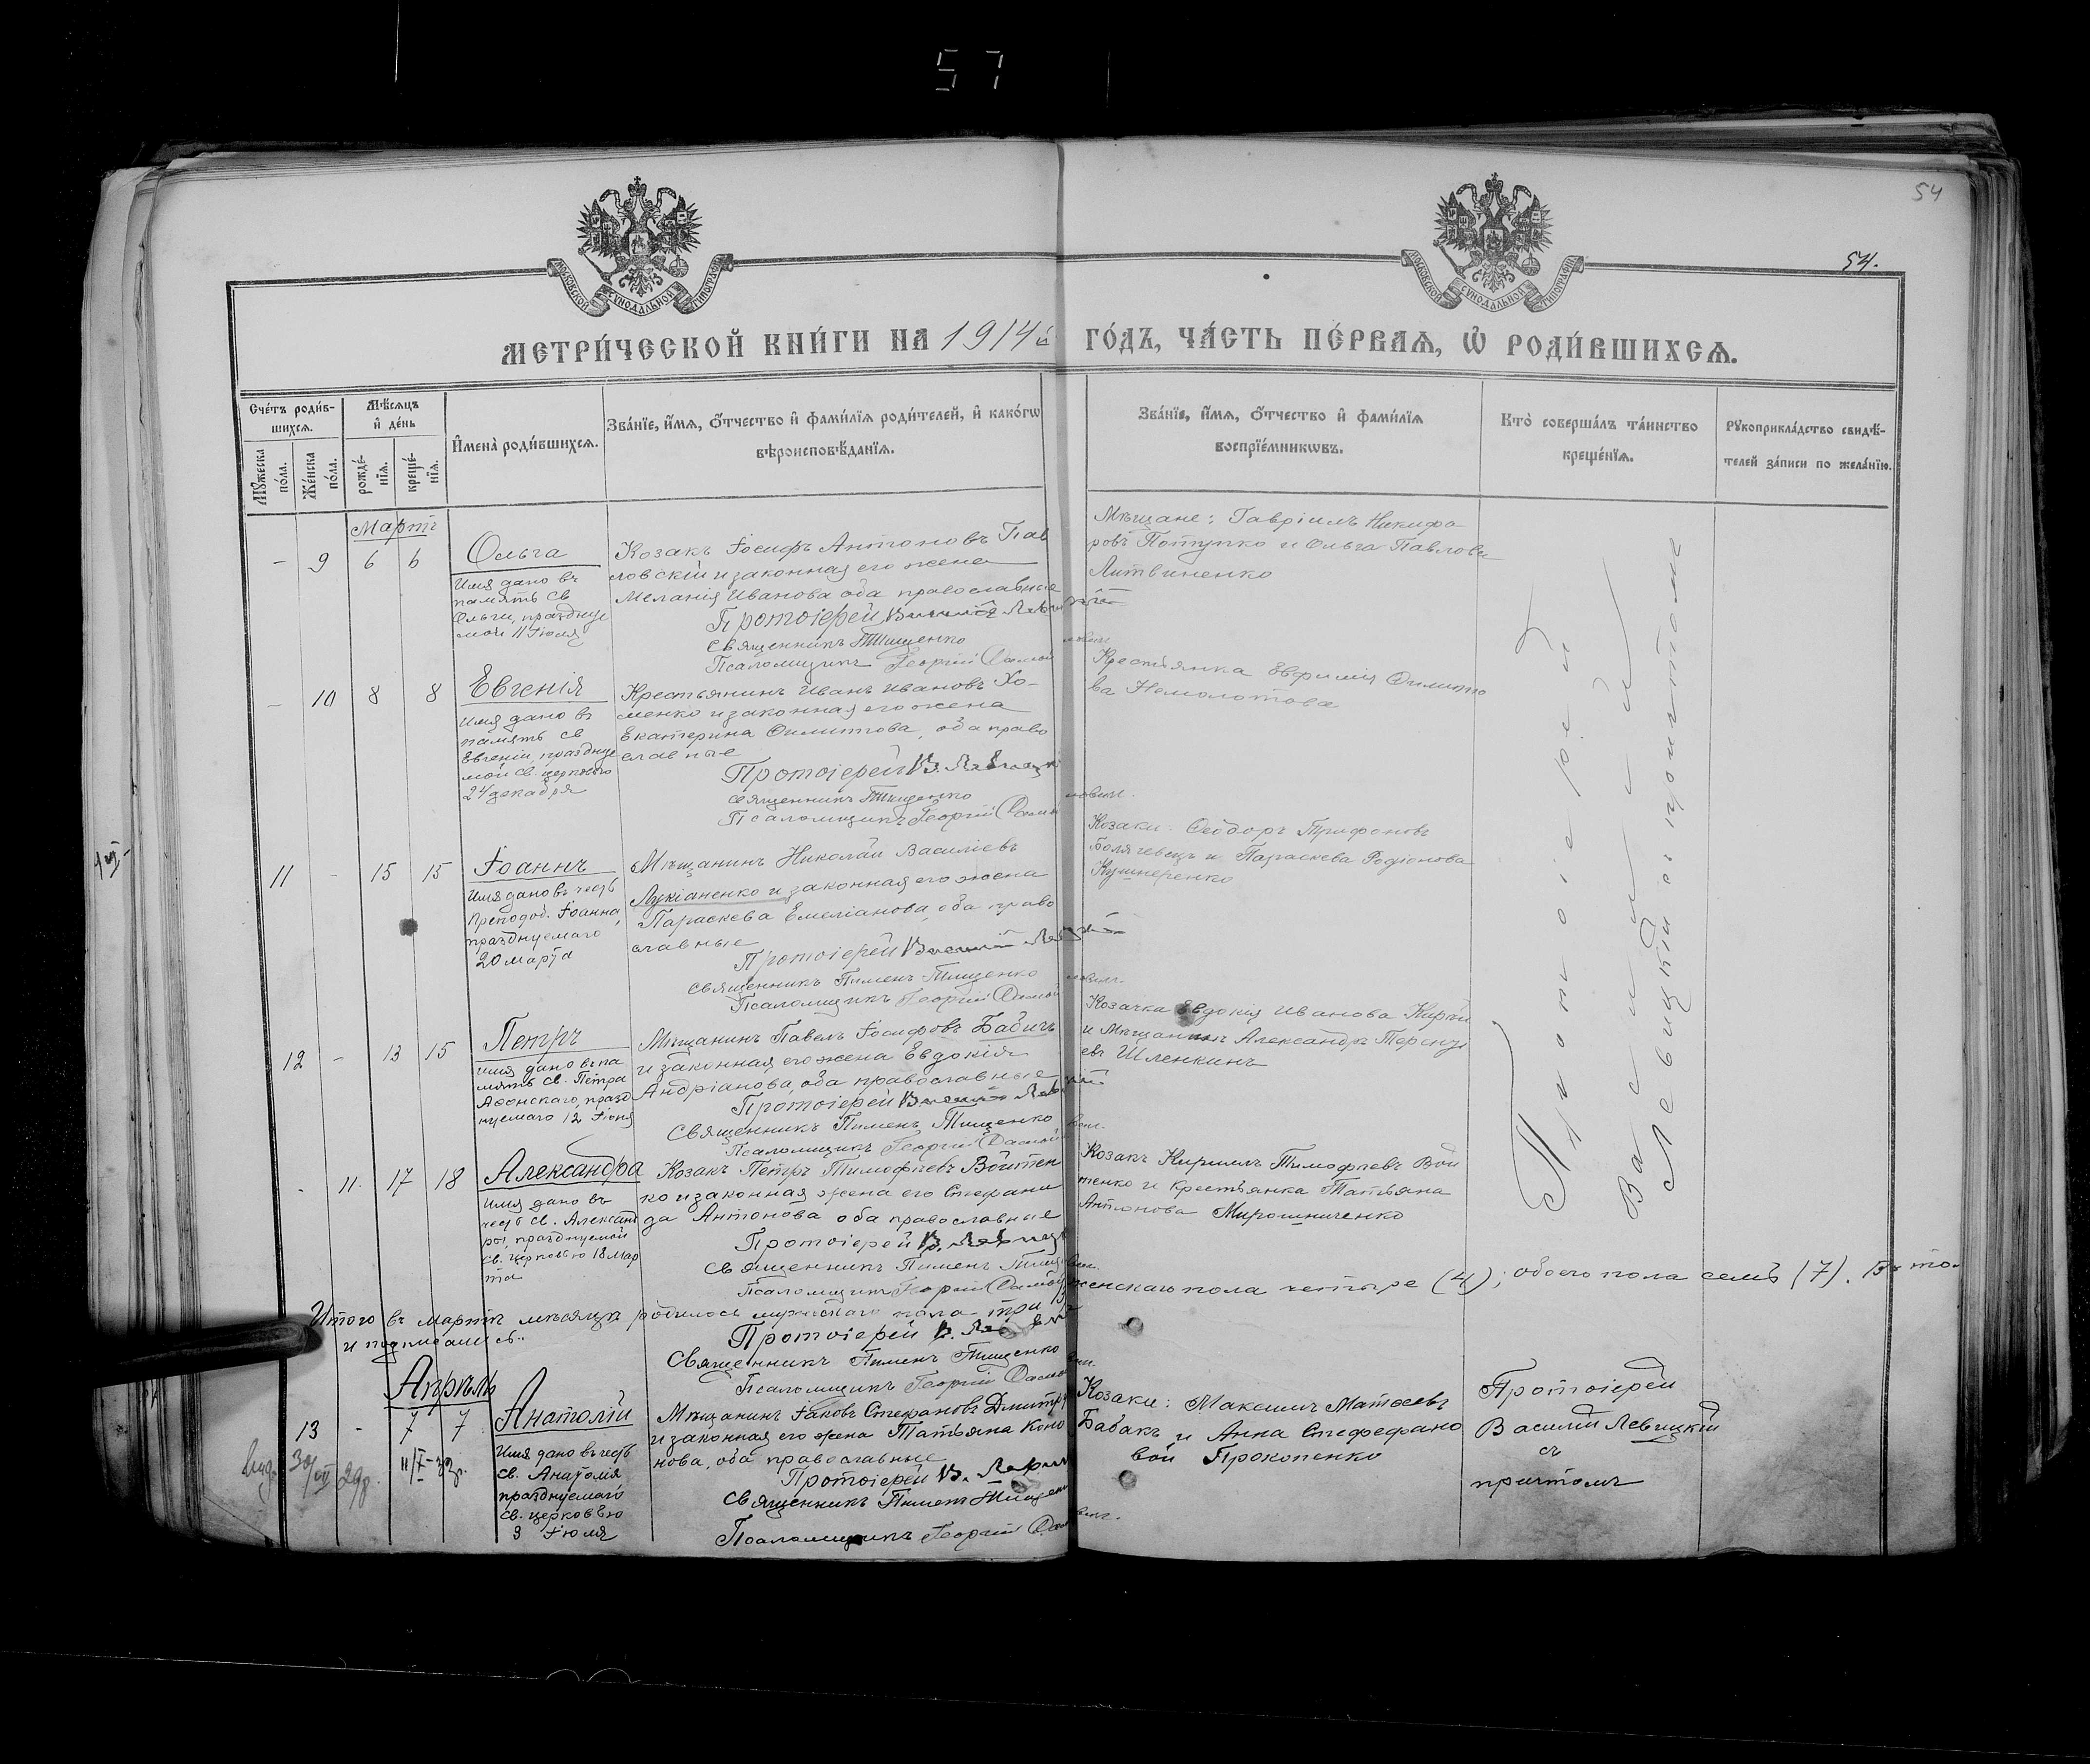 57
54
54.
МОСКОВСКОЙ СѴНОДАЛЬНОЙ ТИПОГРАФІИ
МОСКОВСКОЙ СѴНОДАЛЬНОЙ ТИПОГРАФІИ
МЕТРИ́ЧЕСКОЙ КНИ́ГИ НА 1914й ГО́ДЪ, ЧА́СТЬ ПЕ́РВАѦ, Ѡ҆ РОДИ́ВШИХСѦ.
Сче́тъ роди́в-
шихсѧ.
Мꙋ́жеска по́ла.
Же́нска по́ла.
Мѣ́сѧцъ
и҆ де́нь
рожде́-
нїѧ.
креще́-
нїѧ.
И҆мена̀ роди́вшихсѧ.
Зва́нїе, и҆́мѧ, ѻ҆́тчество и҆ фами́лїѧ роди́телей, и҆ како́гѡ
вѣроисповѣ́данїѧ.
Зва́нїе, и҆́мѧ, ѻ҆́тчество и҆ фами́лїѧ
воспрїе́мникѡвъ.
Кто̀ соверша́лъ та́инство
креще́нїѧ.
Рꙋкоприкла́дство свидѣ́-
телей за́писи по жела́нїю.
Мартъ
- 9 6 6
Ольга
Имя дано въ
память св
Ольги, празднуе
мой 11 Іюля
Козакъ Іосифъ Антоновъ Пав
ловскій и законная его жена
Меланія Иванова оба православные
Протоіерей Василій Левицкій
Священникъ Тищенко
Псаломщикъ Георгій
Мѣщане: Гавріилъ Никифо
ровъ Потупко и Ольга Павлова
Литвиненко
- 10 8 8
Евгенія
Имя дано въ
память св
Евгеніи, празднуе
мой св. церковью
24 декабря
Крестьянинъ Иванъ Ивановъ Хо-
менко и законная его жена
Екатерина Филиппова, оба право
славные
Протоіерей В. Левицкі
Священникъ Тищенко
Псаломщикъ Георгій
Крестьянка Евфимія Филиппо
ва Немолотова
11 - 15 15
Іоаннъ
Имя дано въ честь
Преподоб. Іоанна,
празднуемаго
20 марта
Мѣщанинъ Николай Василіевъ
Лукіаненко и законная его жена
Параскева Емеліанова, оба право
славные
Протоіерей Василій Левицкій
Священникъ Пименъ Тищенко
Псаломщикъ Георгій
Козаки: Ѳеодоръ Трифоновъ
Болячевецъ и Параскева Родіонова
Кушнеренко
12 - 13 15
Петръ
Имя дано въ па
мять св. Петра
Аѳонскаго, празд
нуемаго 12 Іюня
Мѣщанинъ Павелъ Іосифовъ Бабичъ
и законная его жена Евдокія
Андріанова, оба православные
Протоіерей Василій Левицкій
Священникъ Пименъ Тищенко
Псаломщикъ Георгій
Козачка Евдокія Иванова
и Мѣщанинъ Александръ Теренті
евъ Шленкинъ
- 11. 17 18
Александра
Имя дано въ
честь св. Александ
ры, празднуемой
св. церковью 18 мар
та
Козакъ Петръ Тимофѣевъ Войтен
ко и законная жена его Стефани
да Антонова оба православные
Протоіерей В. Левицк
Священникъ Пименъ Тищ
Псаломщикъ Георгій
Козакъ Кириллъ Тимофѣевъ Вой
тенко и крестьянка Татьяна
Антонова Мирошниченко
Протоіерей
Василій
Левицкій съ причтомъ
Итого въ мартѣ мѣсяцѣ родилось мужескаго пола три женскаго пола четыре (4); обоего пола семь (7). Въ том
и подписались:
Протоіерей В. Левиц
Священникъ Пименъ Тищенко
Псаломщикъ Георгій
Апрѣль
13 - 7 7
30/VII 29р.
11/X-32р.
Анатолій
Имя дано въ честь
св. Анатолія
празднуемаго
св. церковью
3 Іюля
Мѣщанинъ Іаковъ Стефановъ Дмитр
и законная его жена Татьяна Коно
нова, оба православные
Протоіерей В. Левиц
Священникъ Пименъ Тищен
Псаломщикъ Георгій
Козаки: Максимъ Матѳеевъ
Бабакъ и Анна Стефефано
вой Прокопенко
Протоіерей
Василій Левицкій
съ
причтомъ